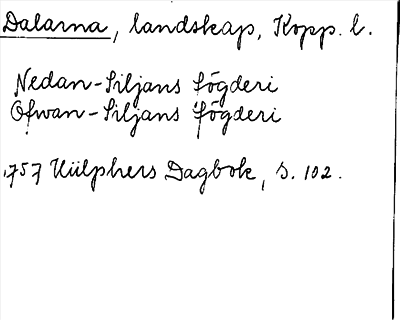 Dalarna, landskap, Kopp. l.
Nedan-Siljans fögderi
Ofwan-Siljans fögderi
1757 Hülphers Dagbok, s. 102.